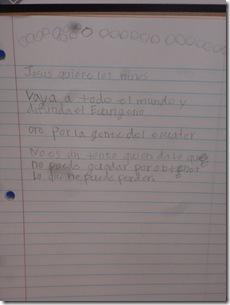 Jesus quiere los niños
Vaya a todo el mundo y
el Evangerio
oro por la gente del
No es un tonto quien da lo que
no puede guardar por obtener
lo que no puede perder